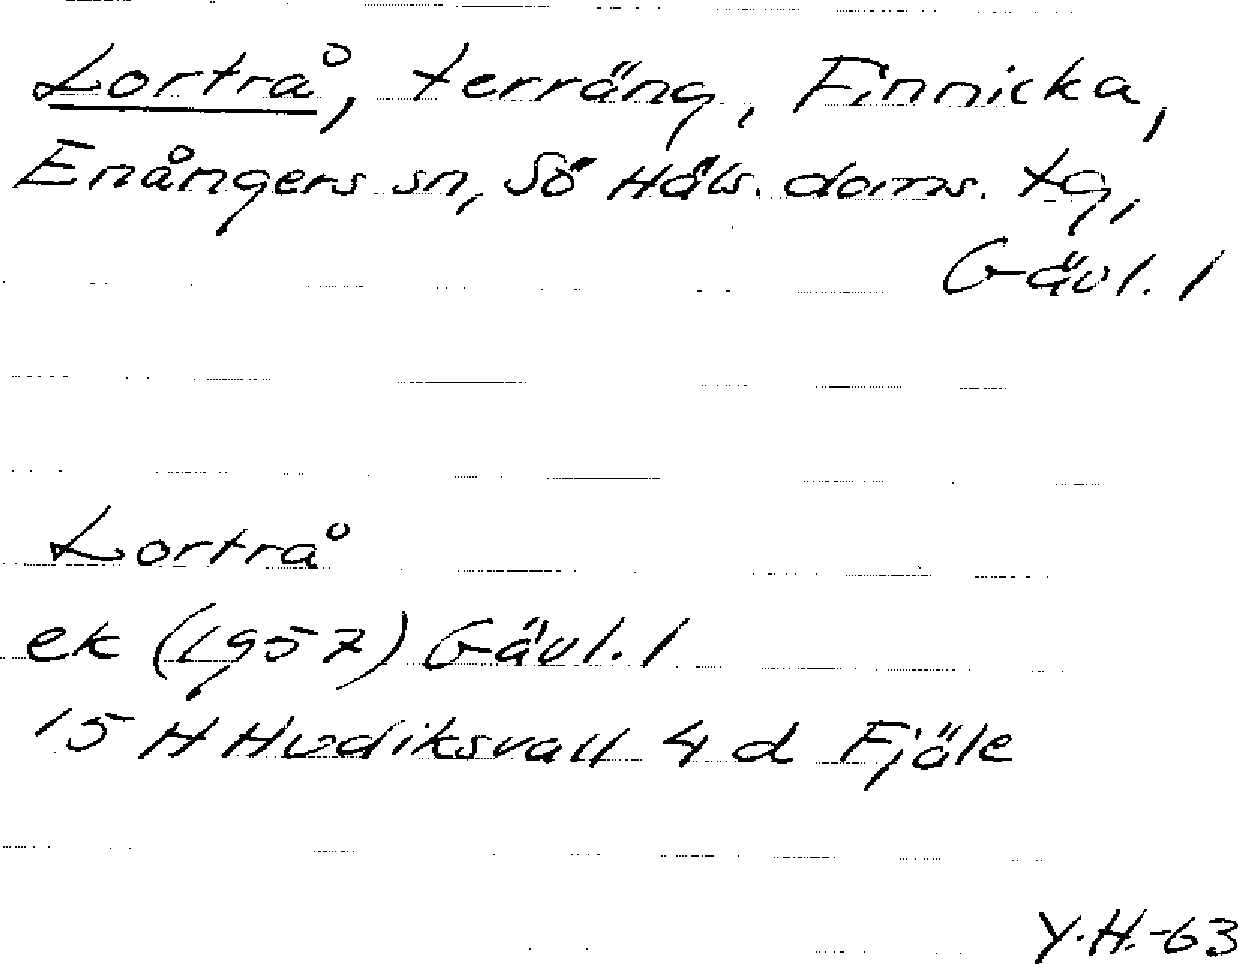 Lortrå, terräng, Finnicka,
Enångers sn, Sö Häls. doms. tg,
Gävl. l
Lortrå
ek (1957) Gävl. l
15 H Hudiksvall 4 d Fjäle
Y.H.-63